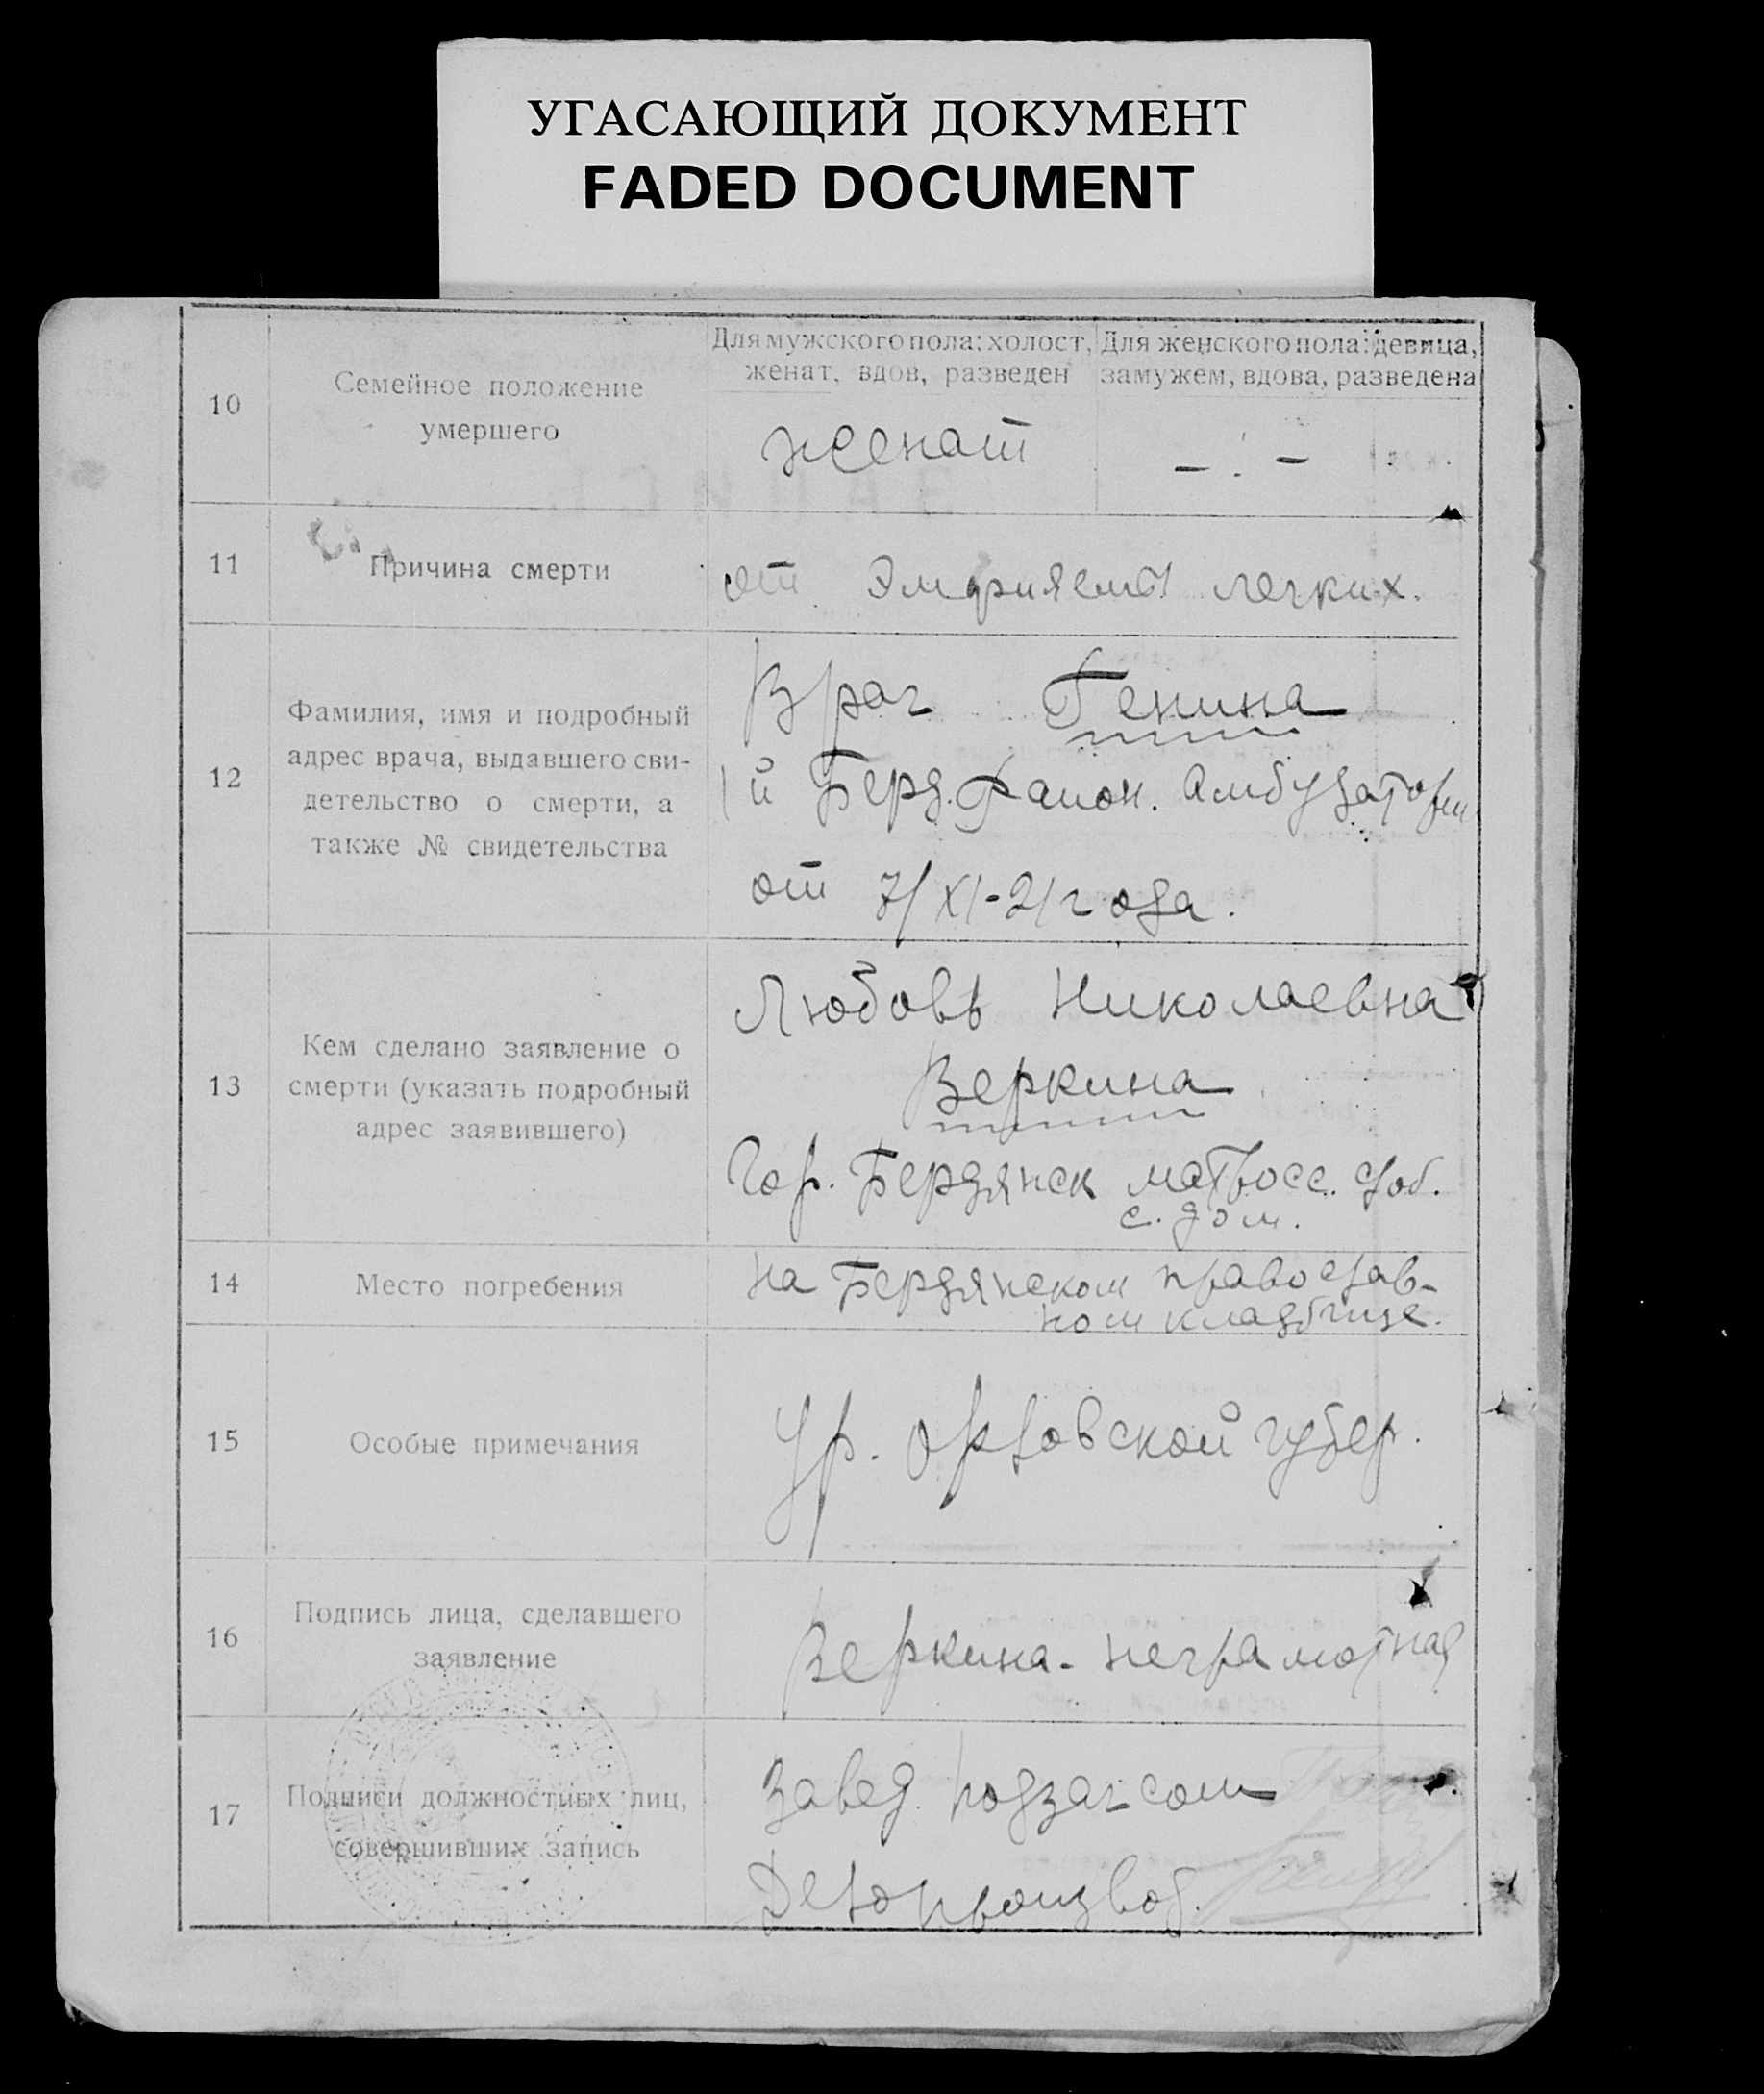 УГАСАЮЩИЙ ДОКУМЕНТ
FADED DOCUMENT
10
Семейное положение
умершего
Для мужского пола: холост,
женат, вдов, разведен
Для женского пола: девица,
замужем, вдова, разведена
женат
— . —
11
Причина смерти
от Эмфиземы легких.
12
Фамилия, имя и подробный
адрес врача, выдавшего сви-
детельство о смерти, а
также № свидетельства
Врач Генина
1й Берд. Район. Амбулатории
от 7/XI-21 года.
13
Кем сделано заявление о
смерти (указать подробный
адрес заявившего)
Любовь Николаевна
Веркина
Гор. Бердянск матросс. слоб.
с. дом.
14
Место погребения
на Бердянском православ-
ном кладбище.
15
Особые примечания
Ур. Орловской губер.
16
Подпись лица, сделавшего
заявление
Веркина - неграмотная
17
Подписи должностных лиц,
совершивших запись
Завед. подзагсом
Делопроизвод.